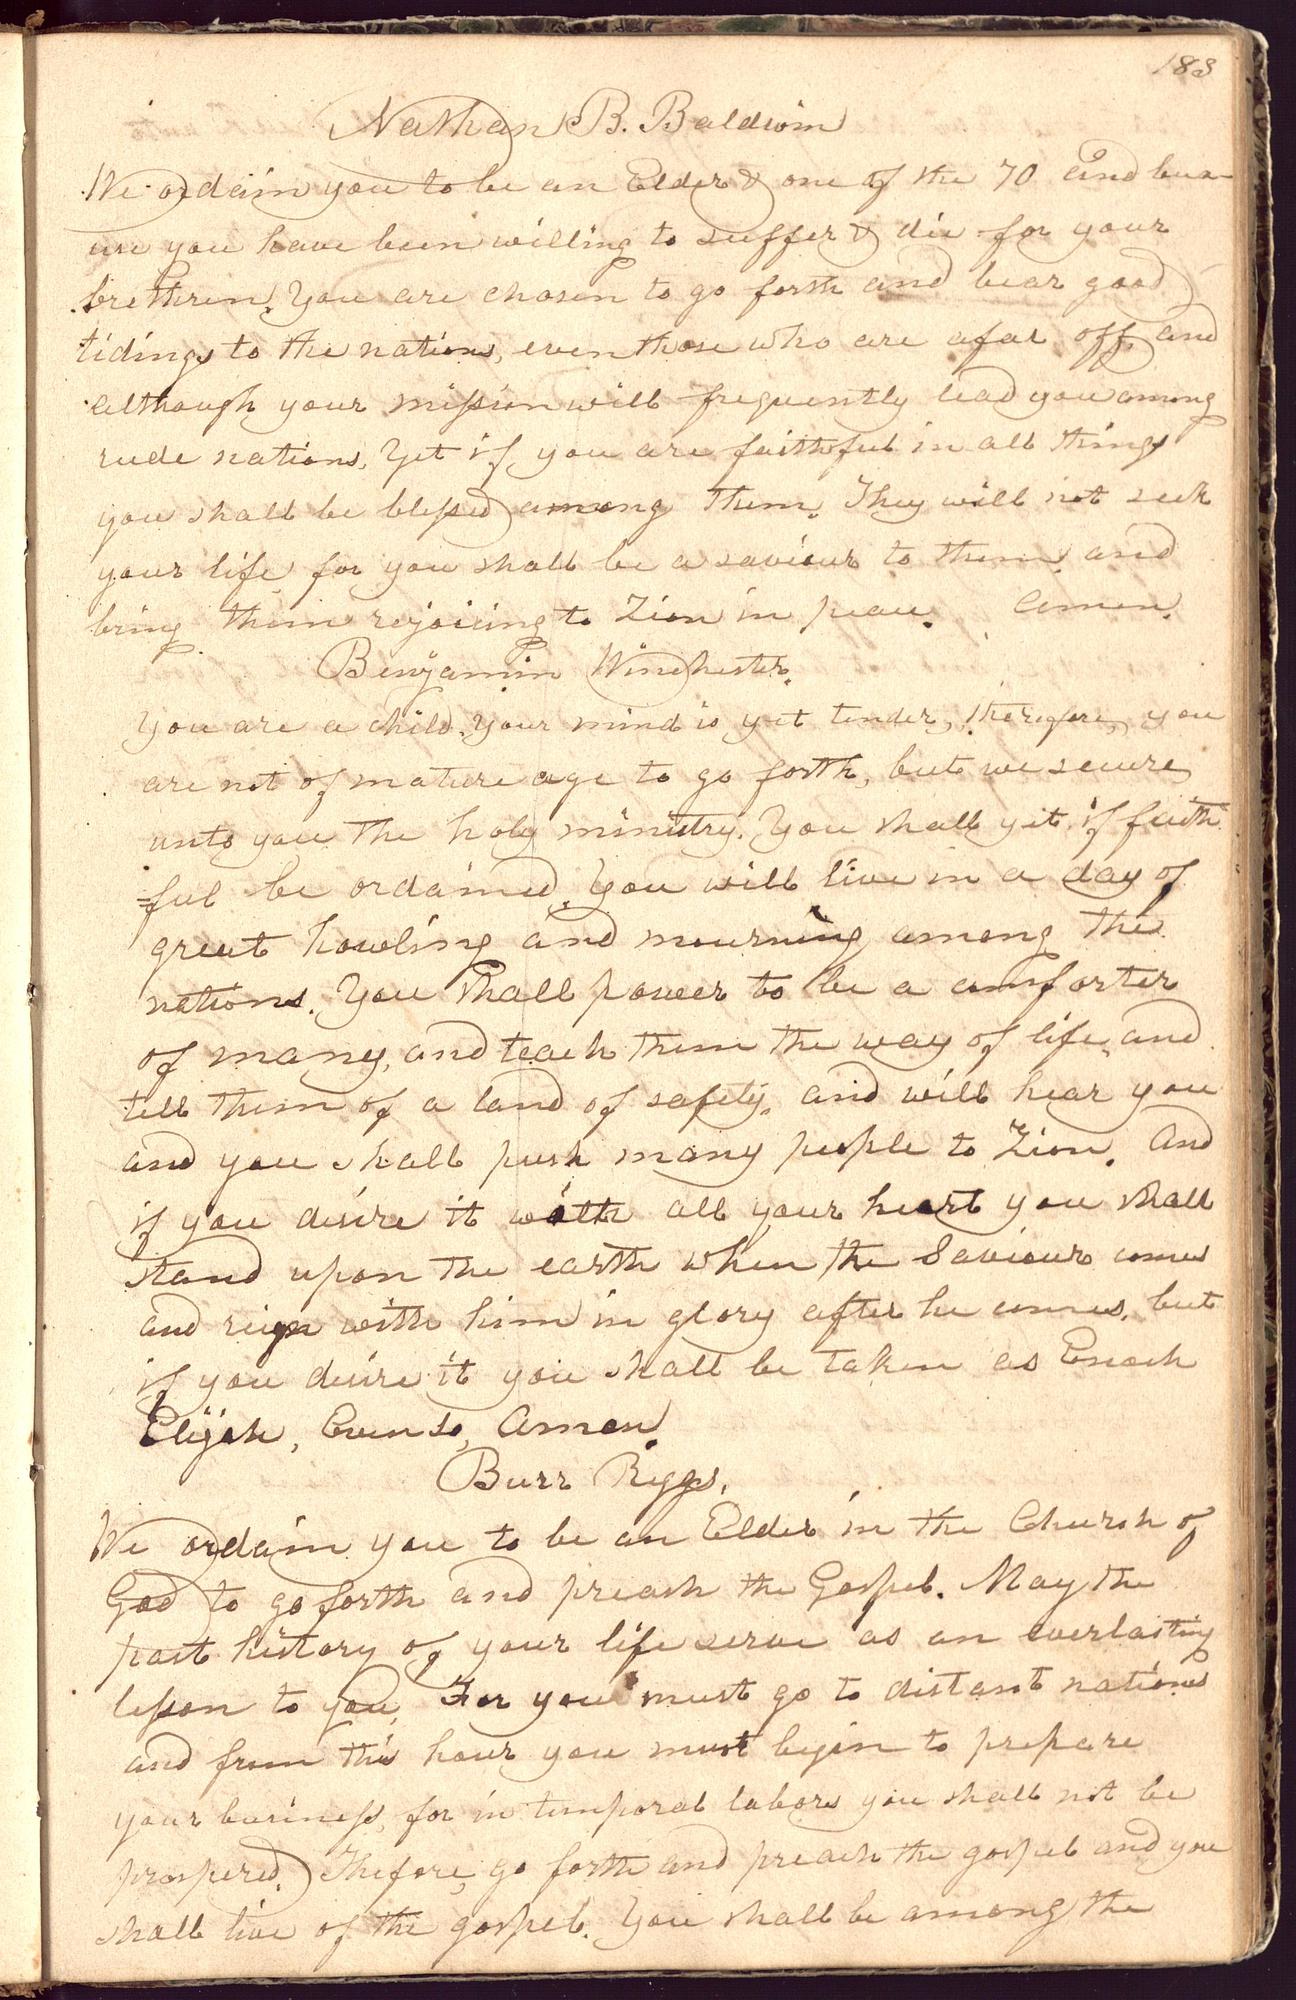 183
Nathan B. Baldwin
We ordain you to be an Elder & one of the 70 and beca-
use you have been willing to suffer & die for your
brethren. You are chosen to go forth and bear good
tidings to the nations, even those who are afar off, and
although your mission will frequently lead you among
rude nations, Yet if you are faithful in all things
you shall be blessed among them. They will not seek
your life for you shall be a saviour to them, and
bring them rejoicing to Zion in peace. Amen.
Benjamin Winchester.
You are a child. Your mind is yet tender, therefore, you
are not of mature age to go forth, but we secure
unto you the holy ministry. You shall yet if faith
=ful be ordained. You will live in a day of
great howling and mourning among the
nations. You shall power to be a comforter
of many, and teach them the way of life, and
tell them of a land of safety, and will hear you
and you shall push many people to Zion. And
if you desire it with all your heart you shall
stand upon the earth when the Saviour comes
and reign with him in glory after he comes, but
if you desire it you shall be taken as Enoch
Elijah, Even so, Amen.
Burr Riggs.
We ordain you to be an Elder in the Church of
God to go forth and preach the Gospel. May the
past history of your life serve as an everlasting
lesson to you, For you must go to distant nations
and from this hour you must begin to prepare
your business, for in temporal labors you shall not be
prospered. Thefore, go forth and preach the gospel and you
shall live of the gospel. You shall be among the